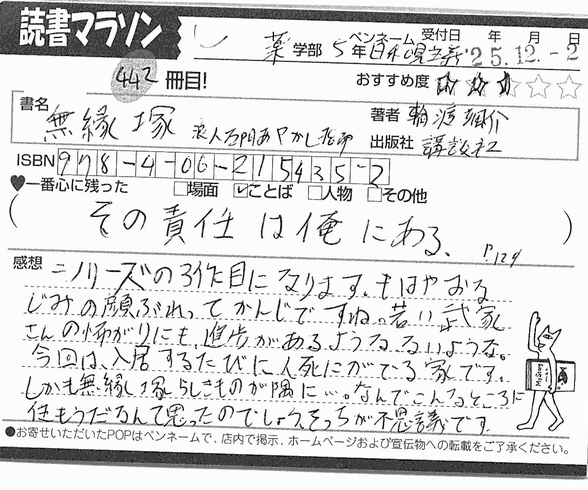 読書マラソン
ペンネーム 受付日 年 月 日
薬 学部 5年 日本現主義 '25.12.-2
442 冊目!
おすすめ度 ★★★☆☆
書名 無縁塚 浪人左門あやかし指南
著者 輪渡颯介
出版社 講談社
ISBN 978-4-06-215435-2
♥一番心に残った □場面 ☑ことば □人物 □その他
(その責任は俺にある。 P124)
感想 シリーズの3作目になります。もはやおな
じみの顔ぶれってかんじですね。若い武家
さんの怖がりにも、進歩があるようなないような。
今回は、入居するたびに人死にがでる家です。
しかも無縁塚らしきものが隅に…。なんでこんなところに
住もうだなんて思ったのでしょう。そっちが不思議です。
●お寄せいただいたPOPはペンネームで、店内で掲示、ホームページおよび宣伝物への転載をご了承ください。